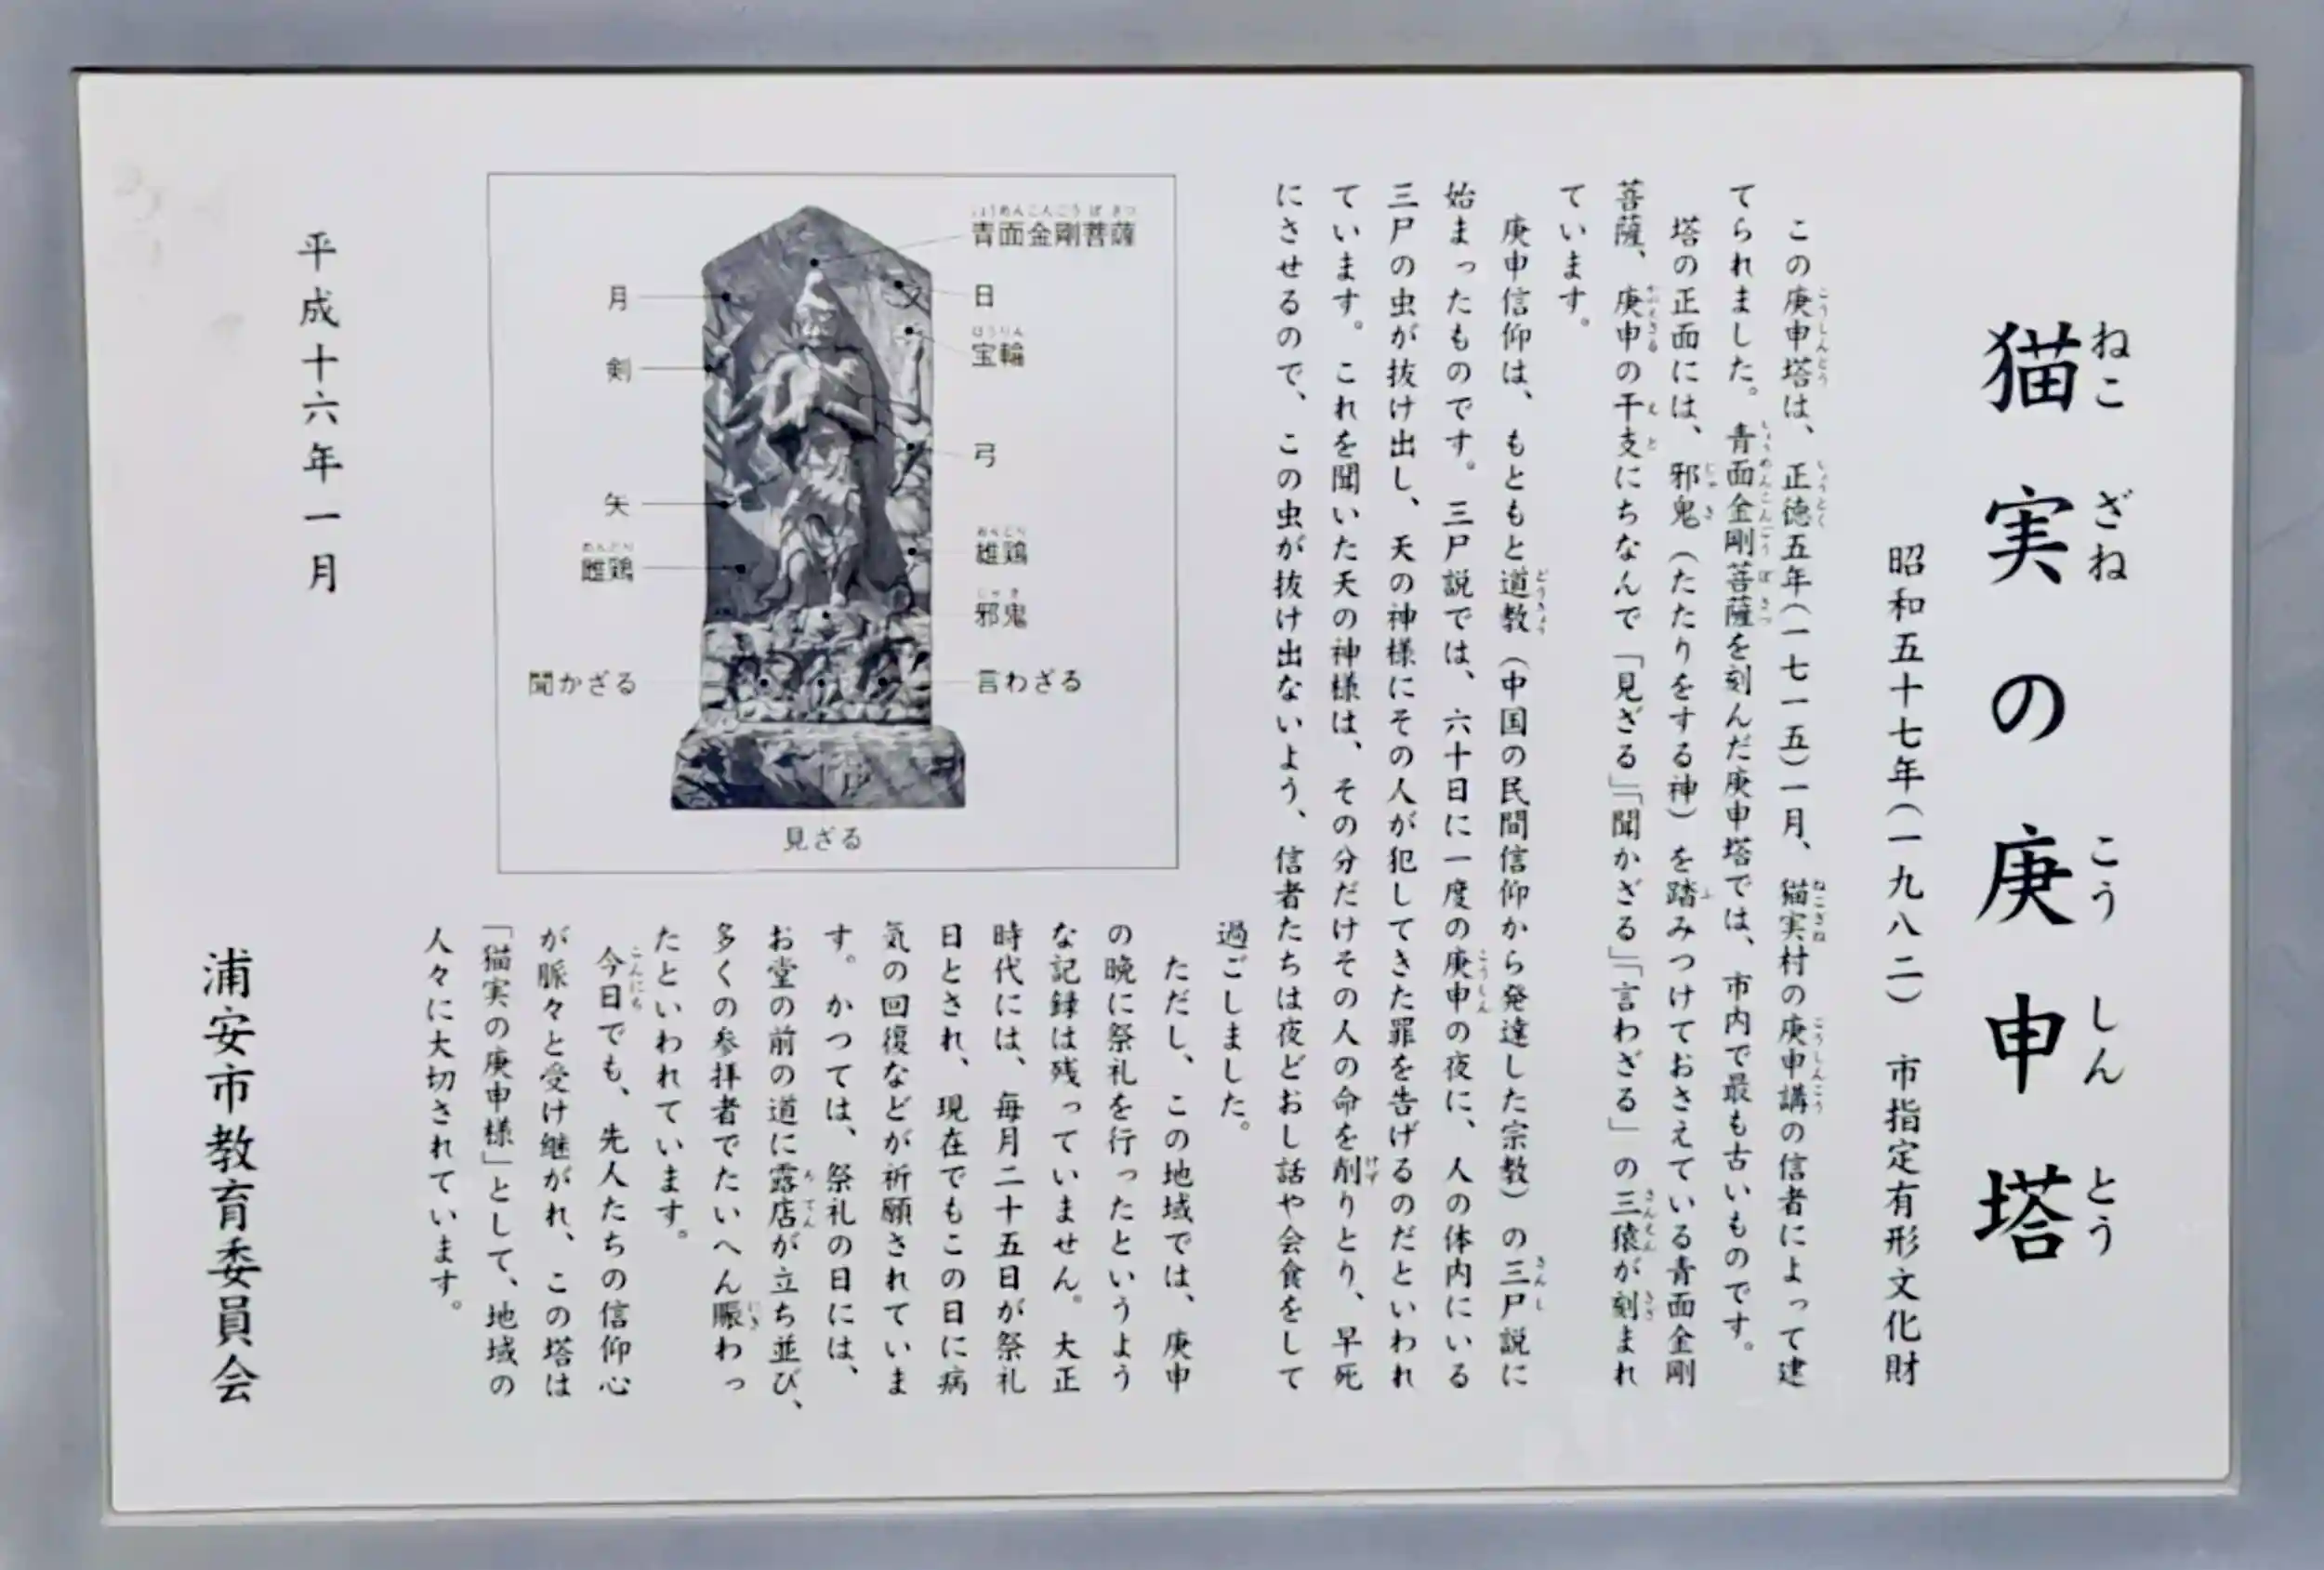 猫実の庚申塔
ねこざねこうしんとう
昭和五十七年(一九八二) 市指定有形文化財
この庚申塔は、正徳五年(一七一五)一月、猫実村の庚申講の信者によって建
てられました。青面金剛菩薩を刻んだ庚申塔では、市内で最も古いものです。
塔の正面には、邪鬼(たたりをする神)を踏みつけておさえている青面金剛
菩薩、庚申の干支にちなんで「見ざる」「聞かざる」「言わざる」の三猿が刻まれ
ています。
庚申信仰は、もともと道教(中国の民間信仰から発達した宗教)の三尸説に
始まったものです。三尸説では、六十日に一度の庚申の夜に、人の体内にいる
三尸の虫が抜け出し、天の神様にその人が犯してきた罪を告げるのだといわれ
ています。これを聞いた天の神様は、その分だけその人の命を削りとり、早死
にさせるので、この虫が抜け出ないよう、信者たちは夜どおし話や会食をして
過ごしました。
ただし、この地域では、庚申
の晩に祭礼を行ったというよう
な記録は残っていません。大正
時代には、毎月二十五日が祭礼
日とされ、現在でもこの日に病
気の回復などが祈願されていま
す。かつては、祭礼の日には、
お堂の前の道に露店が立ち並び、
多くの参拝者でたいへん賑わっ
たといわれています。
今日でも、先人たちの信仰心
が脈々と受け継がれ、この塔は
「猫実の庚申様」として、地域の
人々に大切されています。
青面金剛菩薩
日
宝輪
弓
雄鶏
邪鬼
言わざる
月
剣
矢
雌鶏
聞かざる
見ざる
平成十六年一月
浦安市教育委員会